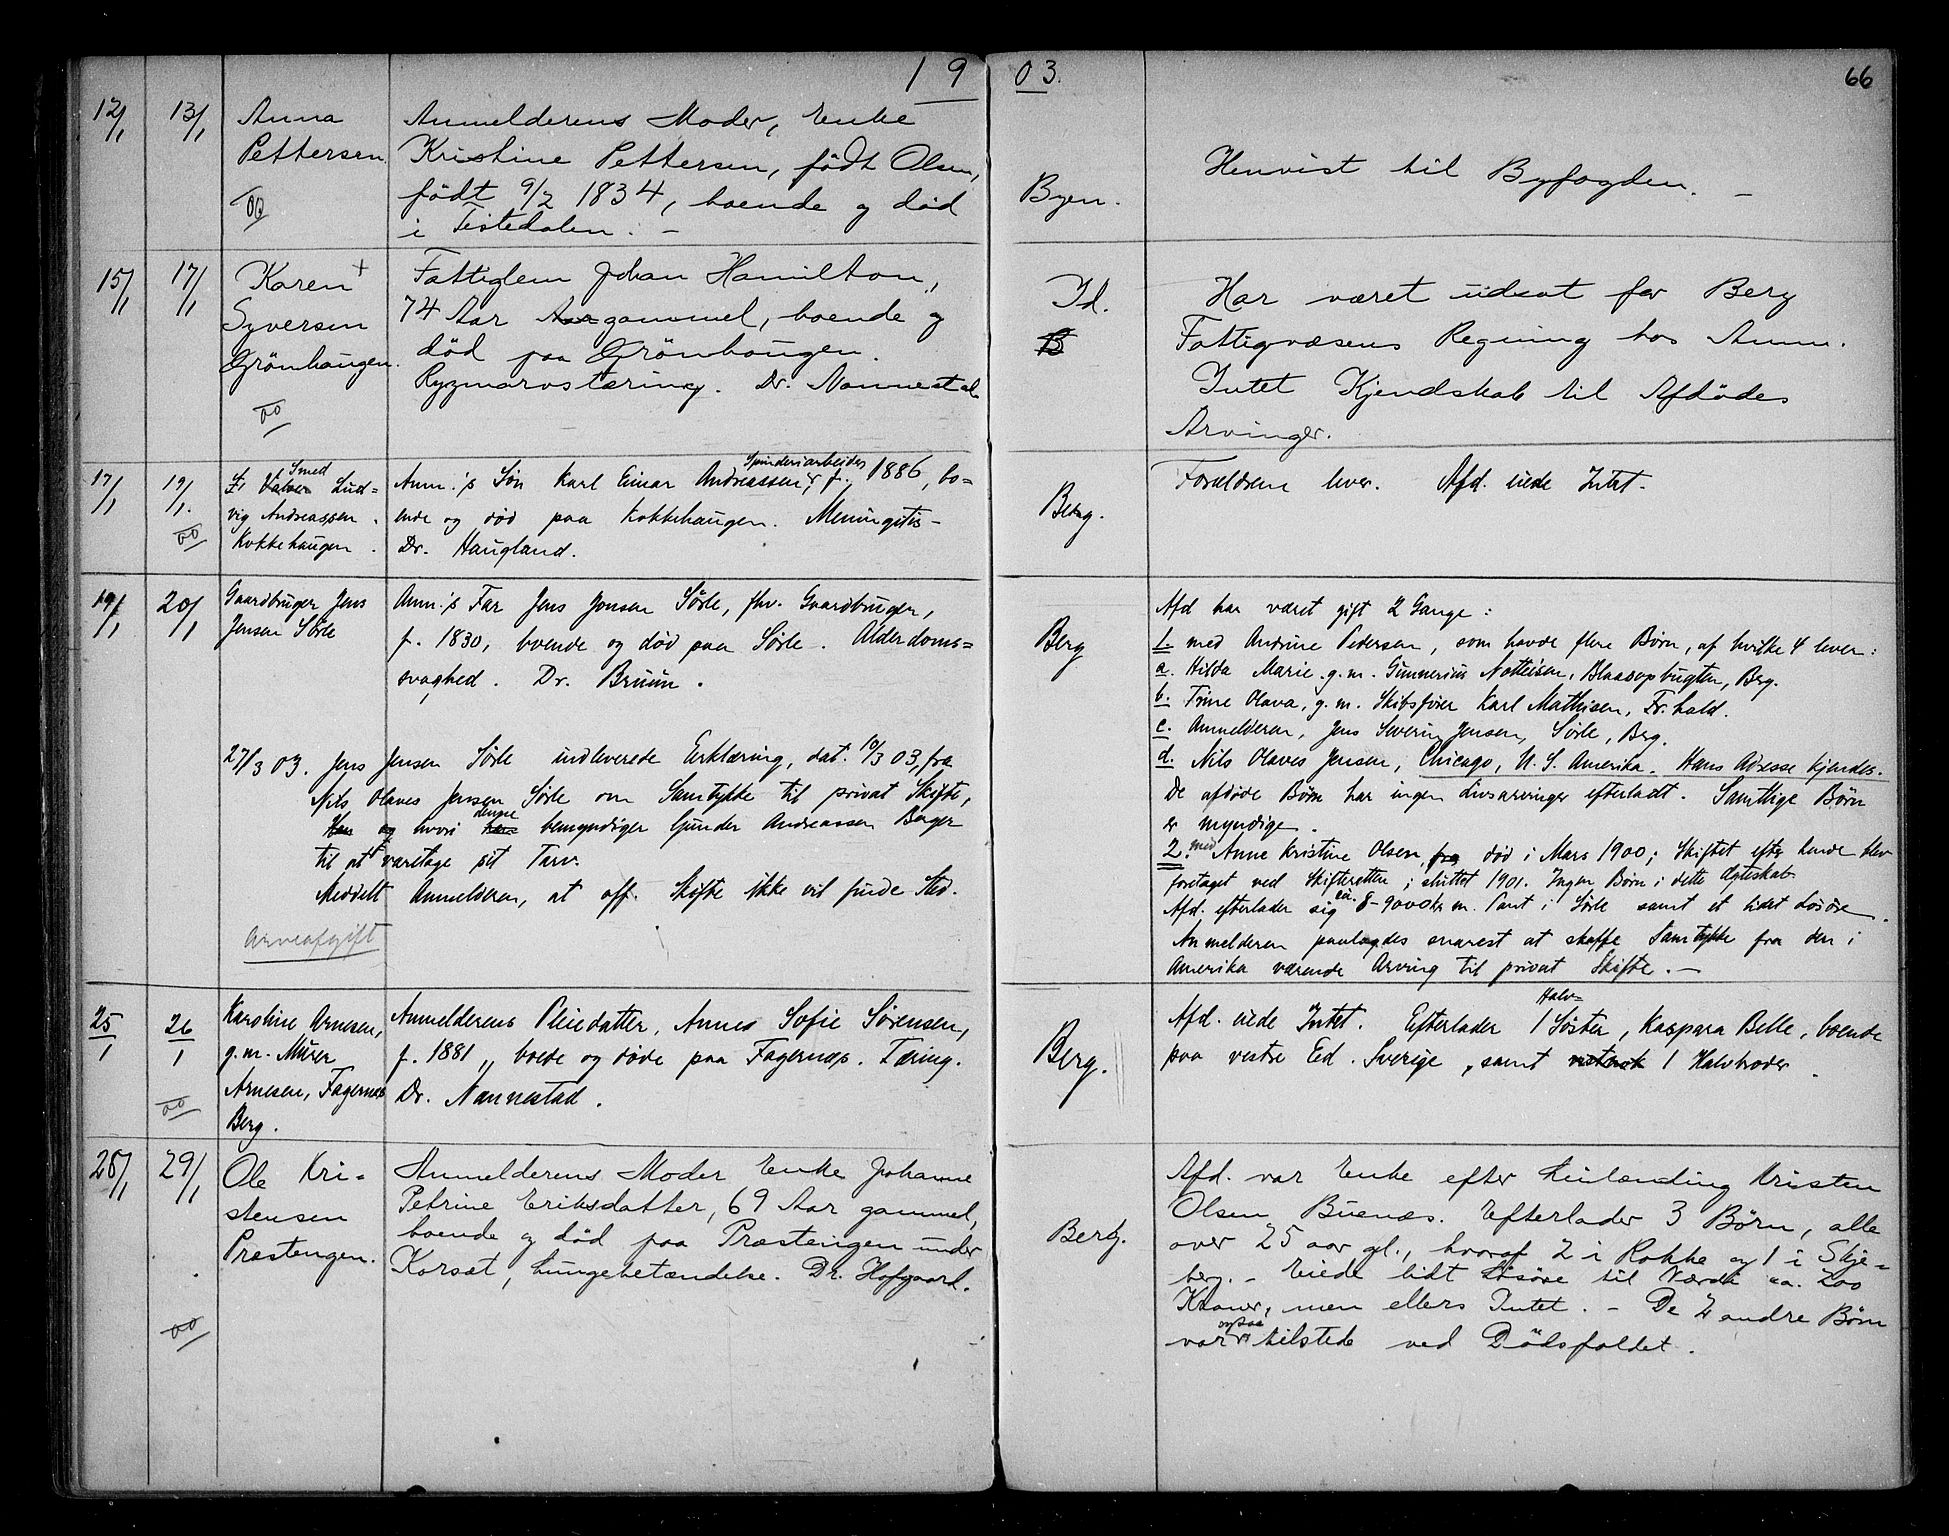 1903.
66
12/1
13/1
Anna
Pettersen
Anmelderens Moder, Enke
Kristine Pettersen, född Olsen,
född 9/2 1834, boende og död
i Tistedalen. -
Byen.
Henvist til Byfogden. -
15/1
17/1
Karen +
Syversen
Grönhaugen.
Fattiglem Johan Hamilton,
74 Aar gammel, boende og
död paa Grönhaugen.
Rygmarvstæring. Dr. Nannestad
Id.
Har været udsat for Berg
Fattigvæsens Regning hos Anm.
Intet Kjendskab til Afdödes
Arvinger.
17/1
19/1.
Smed
Lud=
vig Andreassen.
Kokkehaugen.
Spinderiarbeider
Anm.'s Sön Karl Einar Andreassen, f. 1886, bo=
ende og död paa Kokkehaugen. Meningitis-
Dr. Haugland.
Berg.
Forældrene lever. Afd. eiede Intet.
19/1
20/1
Gaardbruger Jens
Jensen Sörle
Anm.'s Far Jens Jonsen Sörle, fhv. Gaardbruger,
f. 1830, boende og död paa Sörle. Alderdoms=
svaghed. Dr. Bruun.
Berg
Afd har været gift 2 Gange:
1. med Andrine Pedersen, som havde flere Börn, af hvilke 4 lever:
a. Hilda Marie g.m. Gunnerius Mathisen, Blaasopbugten, Berg.
b. Trine Olava, g.m. Skibsförer Karl Mathisen, Fr.hald.
c. Anmelderen, Jens Severin Jensen, Sörle, Berg.
d. Nils Olaves Jensen, Chicago, U.S. Amerika. Hans Adresse kjendes.
De afdöde Börn har ingen Livsarvinger efterladt. Samtlige Börn
er myndige.
2. med Anne Kristine Olsen, död i Mars 1900; Skiftet efter hende blev
foretaget ved Skifteretten; sluttet 1901. Ingen Börn i dette Ægteskab
Afd. efterlader sig ca. 8-9000 kr m. Pant i Sörle samt et lidet Lösöre.
Anmelderen paalagdes snarest at skaffe Samtykke fra den i
Amerika værende Arving til privat Skifte. -
27/3 03. Jens Jensen Sörle indleverede Erklæring, dat. 10/3 03, fra
Nils Olaves Jensen Sörle om Samtykke til privat Skifte,
hvori denne bemyndiger Gunder Andreassen Bager
til at varetage sit Tarv.
Meddelt Anmelderen, at off. Skifte ikke vil finde Sted.
Arveafgift
25/1
26/1
Karoline Arnesen,
g.m. Murer
Arnesen, Fagernes
Berg.
Anmelderens Pleiedatter, Annes Sofie Sörensen,
f. 1881, boede og döde paa Fagernæs. Tæring.
Dr. Nannestad.
Berg.
Afd. eiede Intet. Efterlader 1 Halv=
Söster, Kaspara Belle, boende
paa vestre Ed. Sverige, samt 1 Halvbroder.
28/1
29/1
Ole Kri=
stensen
Prestengen.
Anmelderens Moder Enke Johanne
Petrine Eriksdatter, 69 Aar gammel,
boende og död paa Præstengen under
Korsæt, Lungebetændelse. Dr. Hofgaard.
Berg.
Afd. var Enke efter Huslænding Kristen
Olsen Buenæs. Efterlader 3 Börn, alle
over 25 aar gl., hvoraf 2 i Rokke og 1 i Skje=
berg. - Eiede lidt Lösöre til Værdi ca. 200
Kroner, men ellers Intet. - De 2 andre Börn
var ogsaa tilstede ved Dödsfaldet.